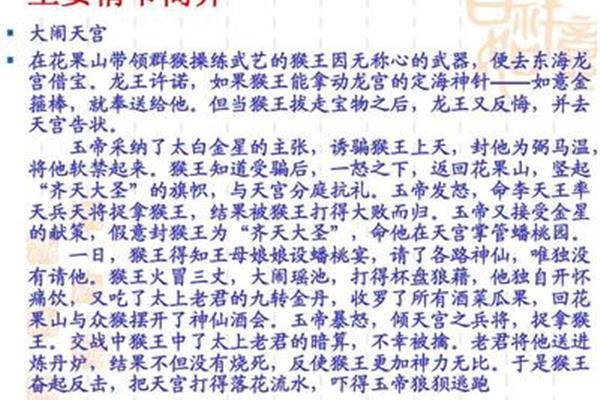 主要情节简介
大闹天宫
在花果山带领群猴操练武艺的猴王因无称心的武器，便去东海龙
宫借宝。龙王许诺，如果猴王能拿动龙宫的定海神针——如意金
箍棒，就奉送给他。但当猴王拔走宝物之后，龙王又反悔，并去
天宫告状。
玉帝采纳了太白金星的主张，诱骗猴王上天，封他为弼马温，
将他软禁起来。猴王知道受骗后，一怒之下，返回花果山，竖起
“齐天大圣”的旗帜，与天宫分庭抗礼。玉帝发怒，命李天王率
天兵天将捉拿猴王，结果被猴王打得大败而归。玉帝又接受金星
的献策，假意封猴王为“齐天大圣”，命他在天宫掌管蟠桃园。
一日，猴王得知王母娘娘设蟠桃宴，请了各路神仙，唯独没
有请他。猴王火冒三丈，大闹瑶池，打得杯盘狼藉，他独自开怀
痛饮，又吃了太上老君的九转金丹，收罗了所有酒菜瓜果，回花
果山与众猴摆开了神仙酒会。玉帝暴怒，倾天宫之兵将，捉拿猴
王。交战中猴王中了太上老君的暗算，不幸被擒。老君将他送进
炼丹炉，结果不但没有烧死，反使猴王更加神力无比。于是猴王
奋起反击，把天宫打得落花流水，吓得玉帝狼狈逃跑